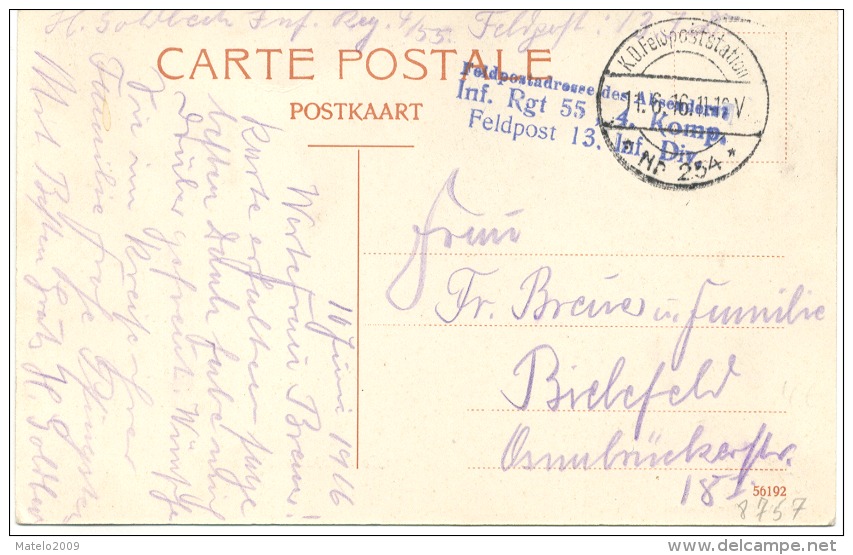 H. Goldbeck Inf. Reg. 4/55. Feldpost: 13. I. D.
CARTE POSTALE
POSTKAART
Feldpostadresse des Absenders:
Inf. Rgt 55, 4. Komp.
Feldpost 13. Inf. Div.
K.D. Feldpoststation
11.6.16. 11-12 V
* Nr. 254 *
10 Juni 1916
Werte Frau Breue!
Karte erhalten sage
besten Dank habe mich
darüber gefreut. Wünsche
Sie im Kreise Ihrer
Familie frohe Pfingsten
Mit Besten Gruß H. Goldbeck
Frau
Fr. Breue u. Familie
Bielefeld
Osnabrückerstr.
18
56192
8757
Matelo2009
delcampe.net